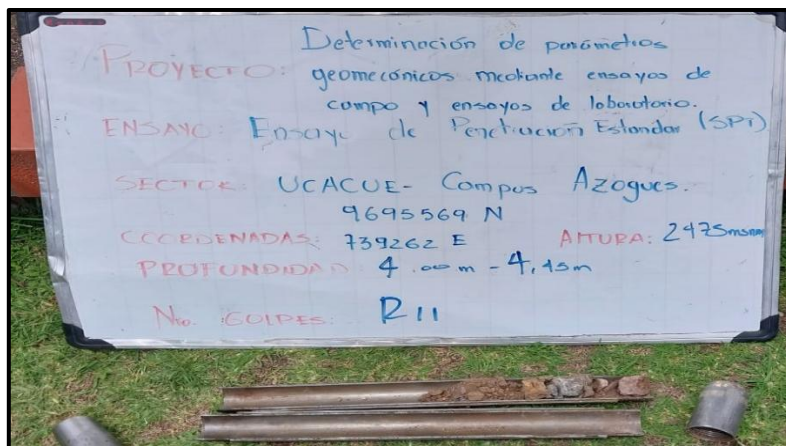 Determinación de parámetros
PROYECTO: geomecánicos mediante ensayos de
campo y ensayos de laboratorio.
ENSAYO: Ensayo de Penetración Estandar (SPT)
SECTOR: UCACUE- Campus Azogues.
9695569 N
COORDENADAS: 739262 E ALTURA: 2475msnm
PROFUNDIDAD: 4.00m - 4,45m
Nro. GOLPES: R11